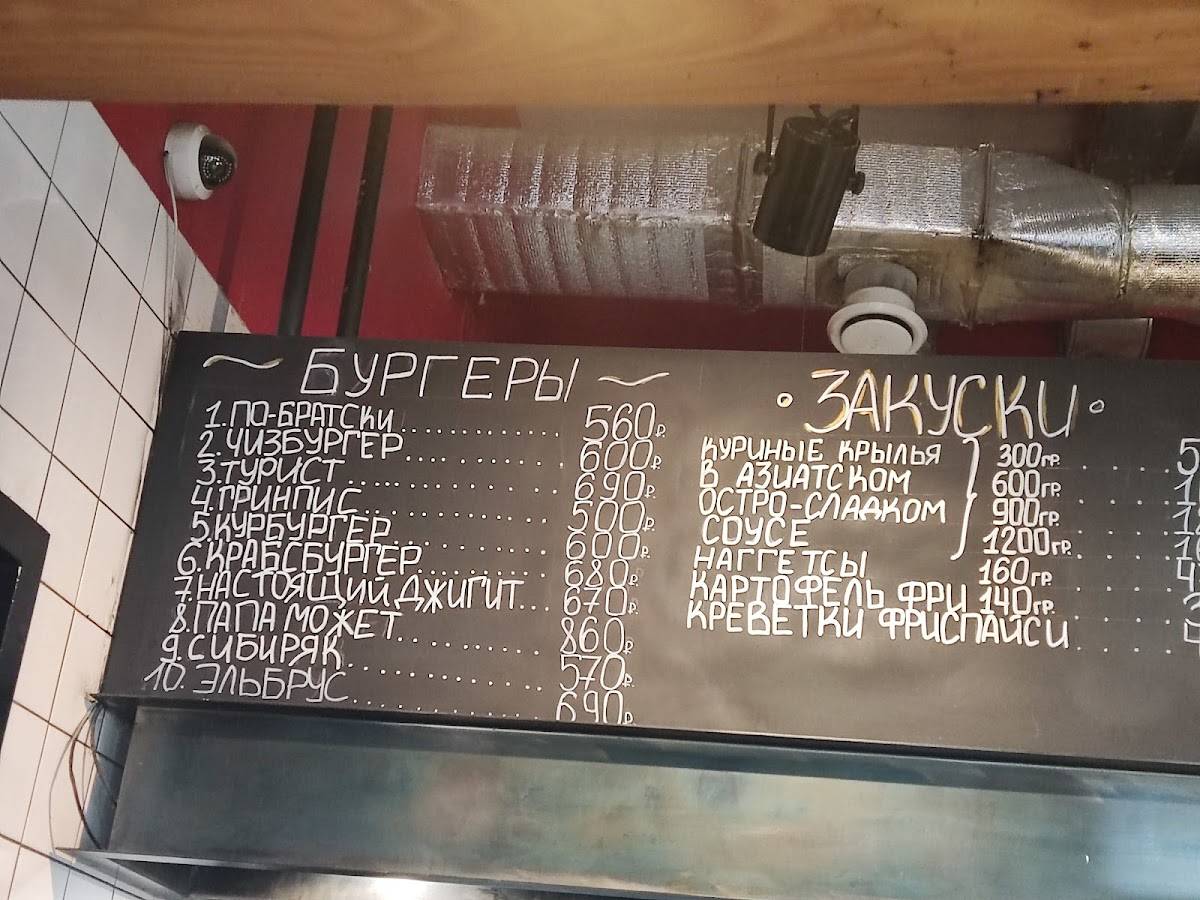 ~ БУРГЕРЫ ~
1. ПО-БРАТСКИ............. 560₽
2. ЧИЗБУРГЕР............ 600₽
3. ТУРИСТ............... 690₽
4. ГРИНПИС............. 500₽
5. КУРБУРГЕР............ 600₽
6. КРАБСБУРГЕР.......... 680₽
7. НАСТОЯЩИЙ ДЖИГИТ... 670₽
8. ПАПА МОЖЕТ.......... 860₽
9. СИБИРЯК............. 570₽
10. ЭЛЬБРУС............. 690₽
• ЗАКУСКИ •
КУРИНЫЕ КРЫЛЬЯ 300ГР.....
В АЗИАТСКОМ 600ГР.....
ОСТРО-СЛАДКОМ 900ГР.....
СОУСЕ 1200ГР.....
НАГГЕТСЫ 160ГР.....
КАРТОФЕЛЬ ФРИ 140ГР.....
КРЕВЕТКИ ФРИСПАЙСИ.....